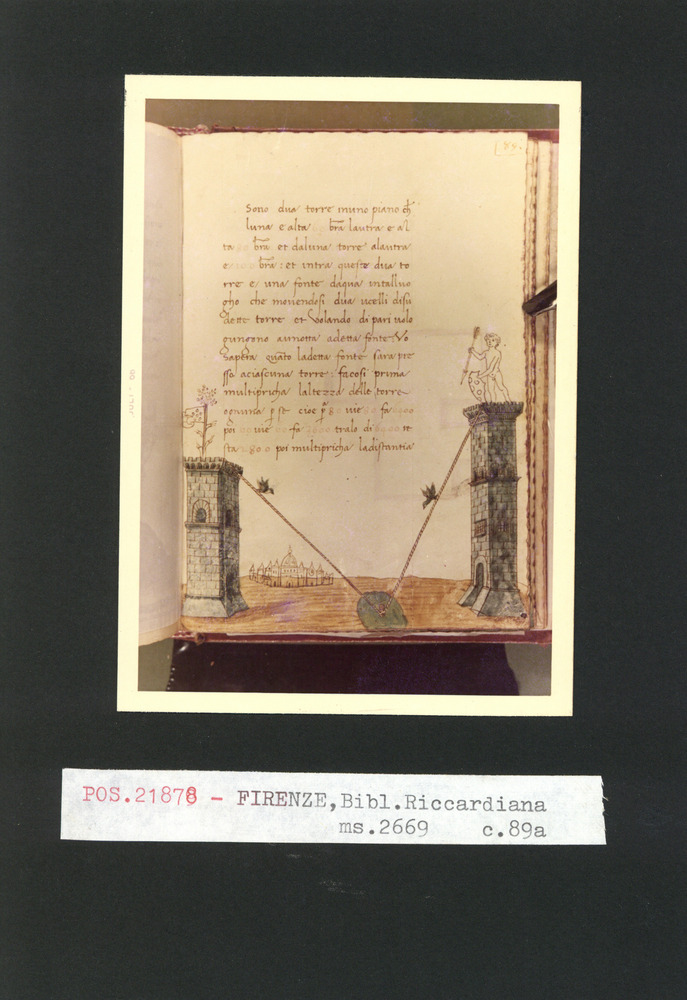 89.
Sono dua torre inuno piano ch
luna e alta bra lautra e al
ta bra et daluna torre alautra
e bra: et intra queste dua to
rre e una fonte daqua intalluo
gho che mouendosi dua ucelli disu
dette torre et volando di pari uolo
gungono aunotta adetta fonte. Vo
sapera quato ladetta fonte sara pre
sso aciascuna torre: facosi prima
multipricha laltezza delle torre
ognuna p se cioe p 80 uie fa
poi uie fa tralo di re
sta 80 0 poi multipricha ladistantia
JULY • 66
POS.21878 - FIRENZE,Bibl.Riccardiana
ms.2669 c.89a